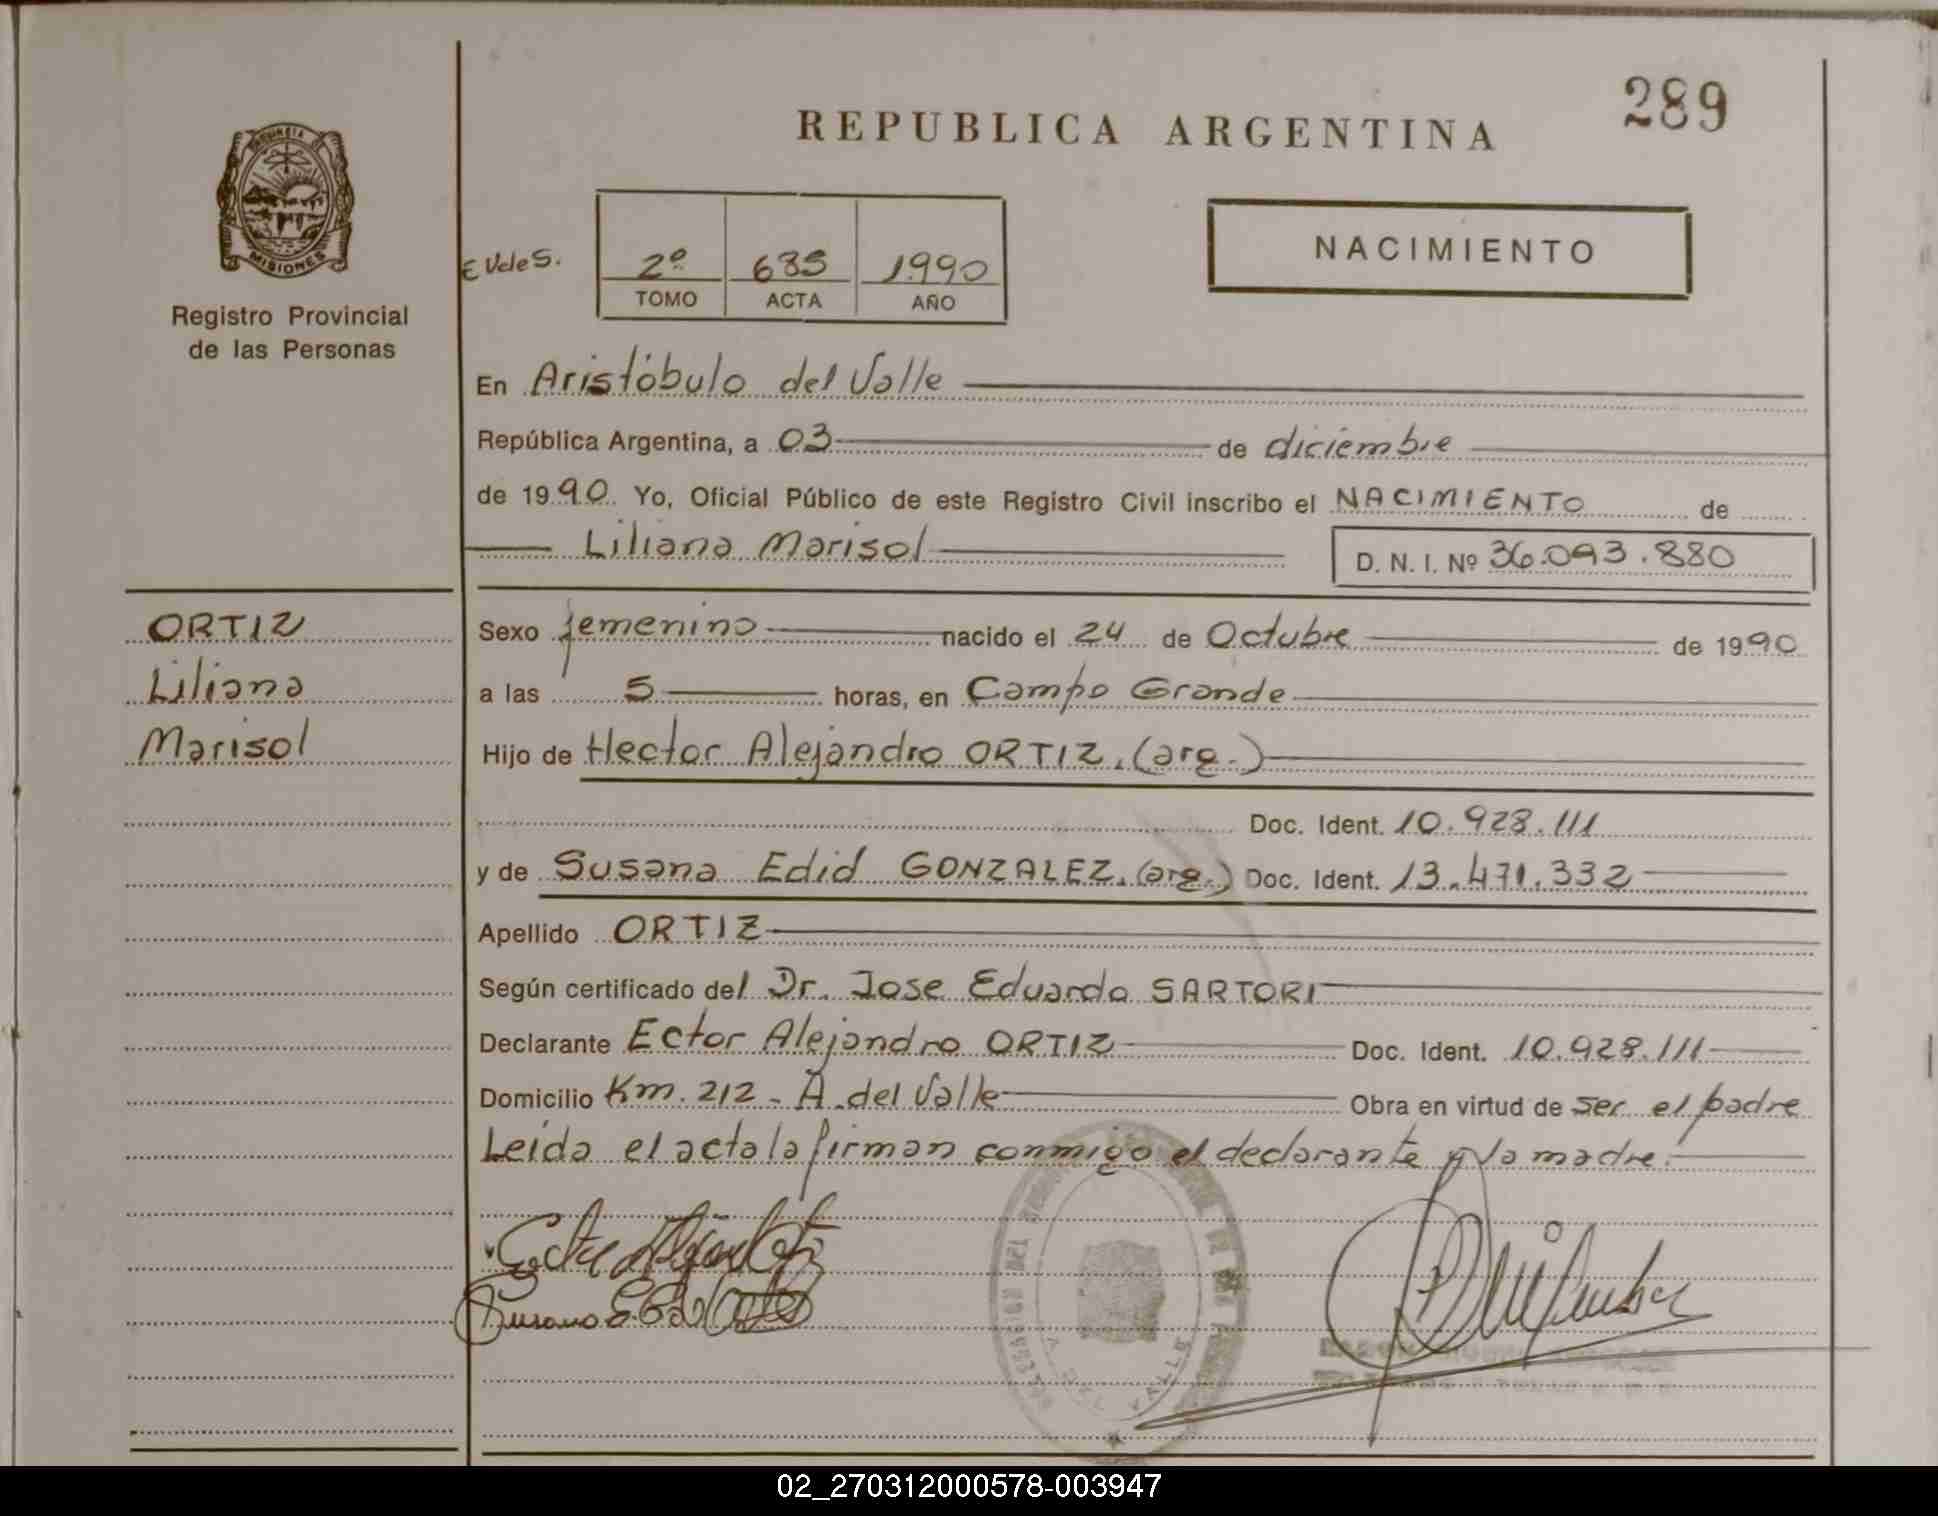 289
REPUBLICA ARGENTINA
MISIONES
Registro Provincial
de las Personas
2º 685 1990
TOMO ACTA AÑO
NACIMIENTO
En Aristóbulo del Valle
República Argentina, a 03 de diciembre
de 1990 Yo, Oficial Público de este Registro Civil inscribo el NACIMIENTO de
Liliana Marisol D. N. I. Nº 36.093.880
ORTIZ
Liliana
Marisol
Sexo femenino nacido el 24 de Octubre de 1990
a las 5 horas, en Campo Grande
Hijo de Hector Alejandro ORTIZ. (arg.)
Doc. Ident. 10.928.111
y de Susana Edid GONZALEZ. (arg.) Doc. Ident. 13.471.332
Apellido ORTIZ
Según certificado del Dr. Jose Eduardo SARTORI
Declarante Ector Alejandro ORTIZ Doc. Ident. 10.928.111
Domicilio Km. 212 - A. del Valle Obra en virtud de ser el padre
Leida el acta la firman conmigo el declarante y la madre.
A. DEL VALLE
02_270312000578-003947